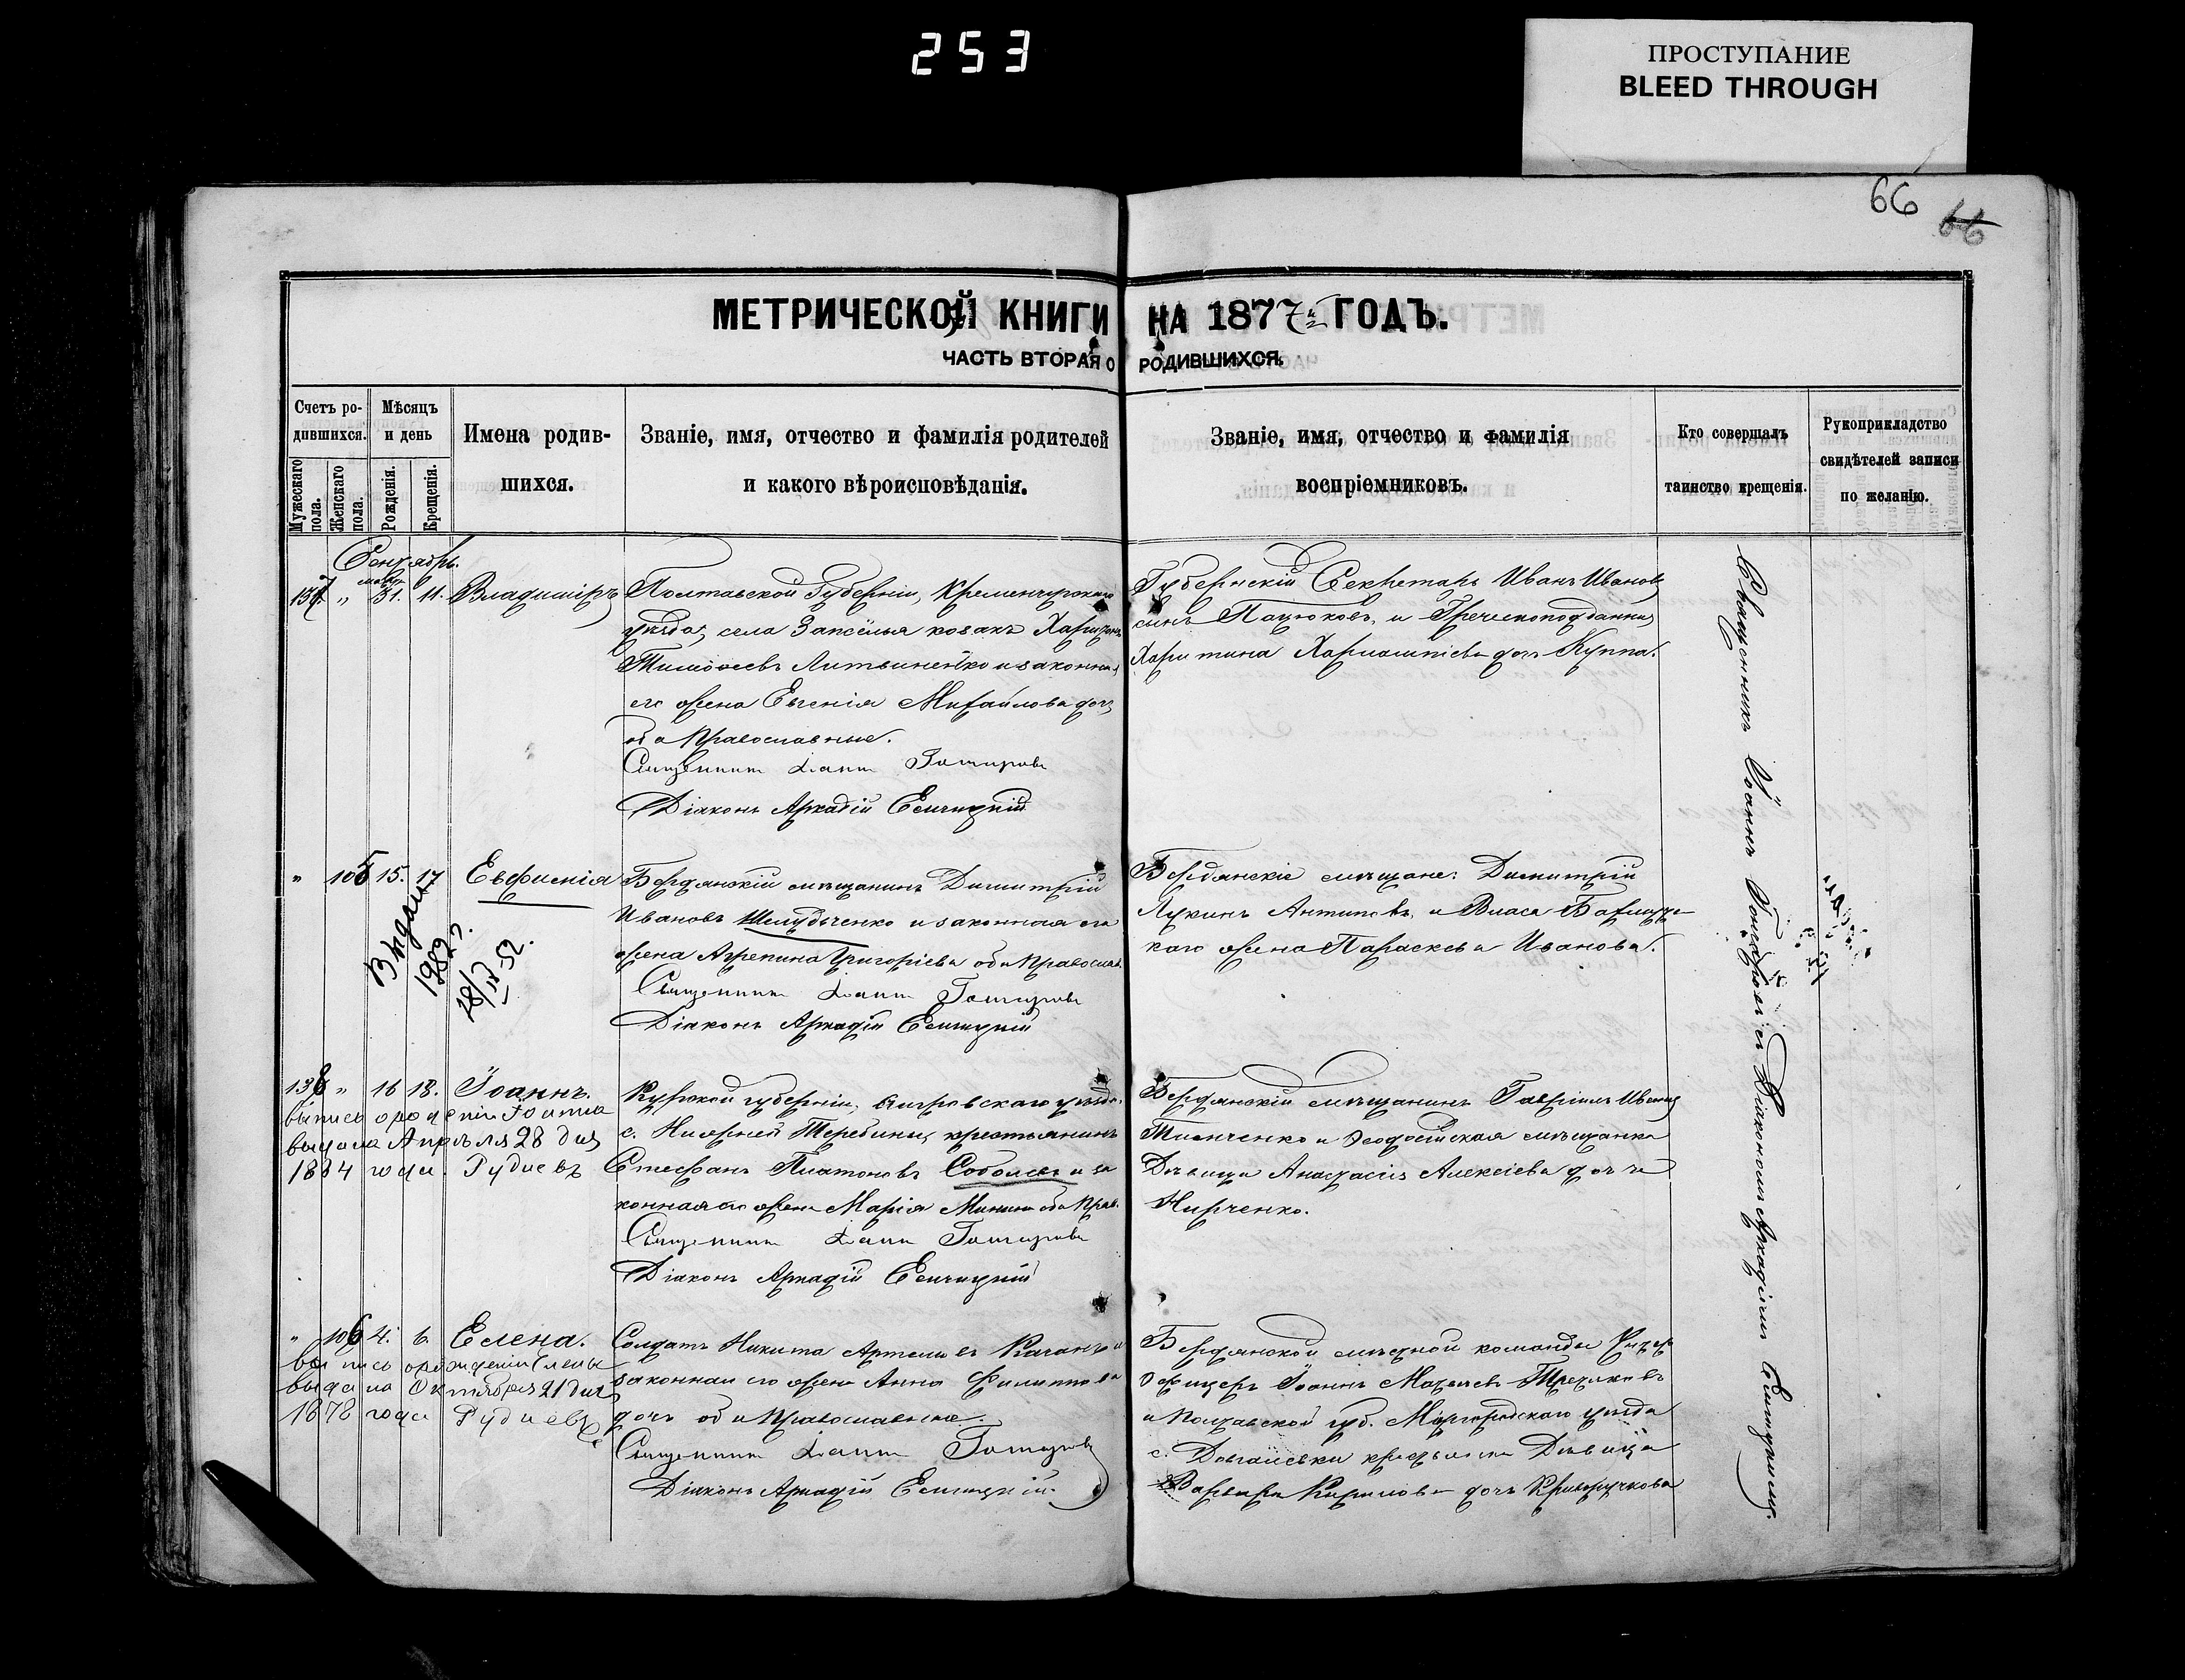 253
ПРОСТУПАНИЕ
BLEED THROUGH
66
66
МЕТРИЧЕСКОЙ КНИГИ НА 1877 ГОДЪ.
ЧАСТЬ ВТОРАЯ О РОДИВШИХСЯ.
Счетъ родившихся.
Мужескаго пола.
Женскаго пола.
Мѣсяцъ и день
Рожденія.
Крещенія.
Имена родившихся.
Званіе, имя, отчество и фамилія родителей
и какого вѣроисповѣданія.
Званіе, имя, отчество и фамилія
воспріемниковъ.
Кто совершалъ
таинство крещенія.
Рукоприкладство
свидѣтелей записи
по желанію.
Сентябрь.
137. „ 31. 11. Владиміръ
Полтавской Губерніи, Кременчугскаго
уѣзда, села Запселья козакъ Харитонъ
Тимоѳеевъ Литвиненко и законная
его жена Евгенія Михайлова дочь
оба Православные.
Священникъ Іоаннъ
Діаконъ Аркадій
Губернскій Секретарь Иванъ Ивановъ
сынъ Пацюковъ, и Греческоподданная
Харитина дочь Куппа.
„ 105 15. 17 Евфимія
Бердянскій мѣщанинъ Димитрій
Ивановъ Шелудченко и законная его
жена Агрепина Григоріева оба Православ.
Священникъ Іоаннъ
Діаконъ Аркадій
Бердянскіе мѣщане: Димитрій
Лукинъ Антиповъ, и Власа
жена Параскева Иванова.
28/IV 52.
138 „ 16 18. Іоаннъ.
выпись о рожденіи Іоанна
выдана Апрѣля 28 дня
1884 года. Рудневъ
Курской губерніи, Щигровскаго уѣзда.
с. Нижней Теребины, крестьянинъ
Стефанъ Платоновъ Соболевъ и законная его жена Марія Минина оба Прав.
Священникъ Іоаннъ
Діаконъ Аркадій
Бердянскій мѣщанинъ Гавріилъ Ивановъ
Тимченко и Ѳеодосійская мѣщанка
Дѣвица Анастасія Алексіева дочь
Кирченко.
„ 106 4. 6. Елена.
выпись о рожденіи Елены
выдана Октября 21 дня
1878 года Рудневъ
Солдатъ Никита Артемьевъ Качанъ и
законная его жена Анна Филиппова
дочь оба Православные.
Священникъ Іоаннъ
Діаконъ Аркадій
Бердянской мѣстной команды Унтеръ
Офицеръ Іоаннъ Третьяковъ
и Полтавской губ. Миргородскаго уѣзда
с. Довгалевки крестьянка Дѣвица
Варвара Кирилова дочь Криворучкова
Священникъ Іоаннъ съ Діакономъ Аркадіемъ